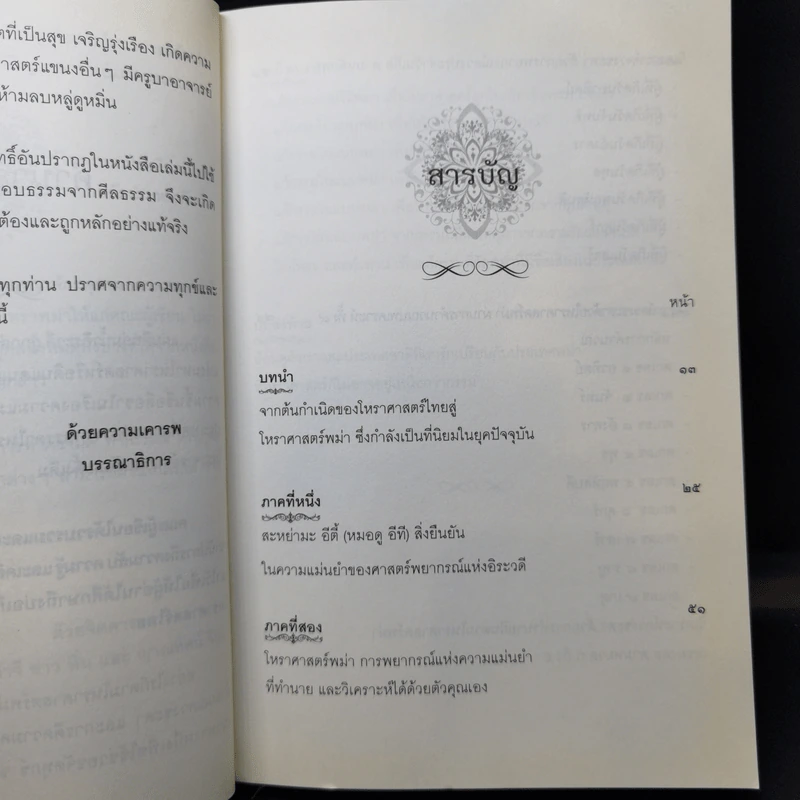 ที่เป็นสุข เจริญรุ่งเรือง เกิดความ
าสตร์แขนงอื่นๆ มีครูบาอาจารย์
ห้ามลบหลู่ดูหมิ่น
ทธิ์อันปรากฏในหนังสือเล่มนี้ไปใช้
อบธรรมจากศีลธรรม จึงจะเกิด
ต้องและถูกหลักอย่างแท้จริง
ทุกท่าน ปราศจากความทุกข์และ
นี้
ด้วยความเคารพ
บรรณาธิการ
สารบัญ
หน้า
บทนำ ๑๓
จากต้นกำเนิดของโหราศาสตร์ไทยสู่
โหราศาสตร์พม่า ซึ่งกำลังเป็นที่นิยมในยุคปัจจุบัน
ภาคที่หนึ่ง ๒๕
สะหย่ามะ อีตี้ (หมอดู อีที) สิ่งยืนยัน
ในความแม่นยำของศาสตร์พยากรณ์แห่งอิระวดี
ภาคที่สอง ๕๑
โหราศาสตร์พม่า การพยากรณ์แห่งความแม่นยำ
ที่ทำนาย และวิเคราะห์ได้ด้วยตัวคุณเอง